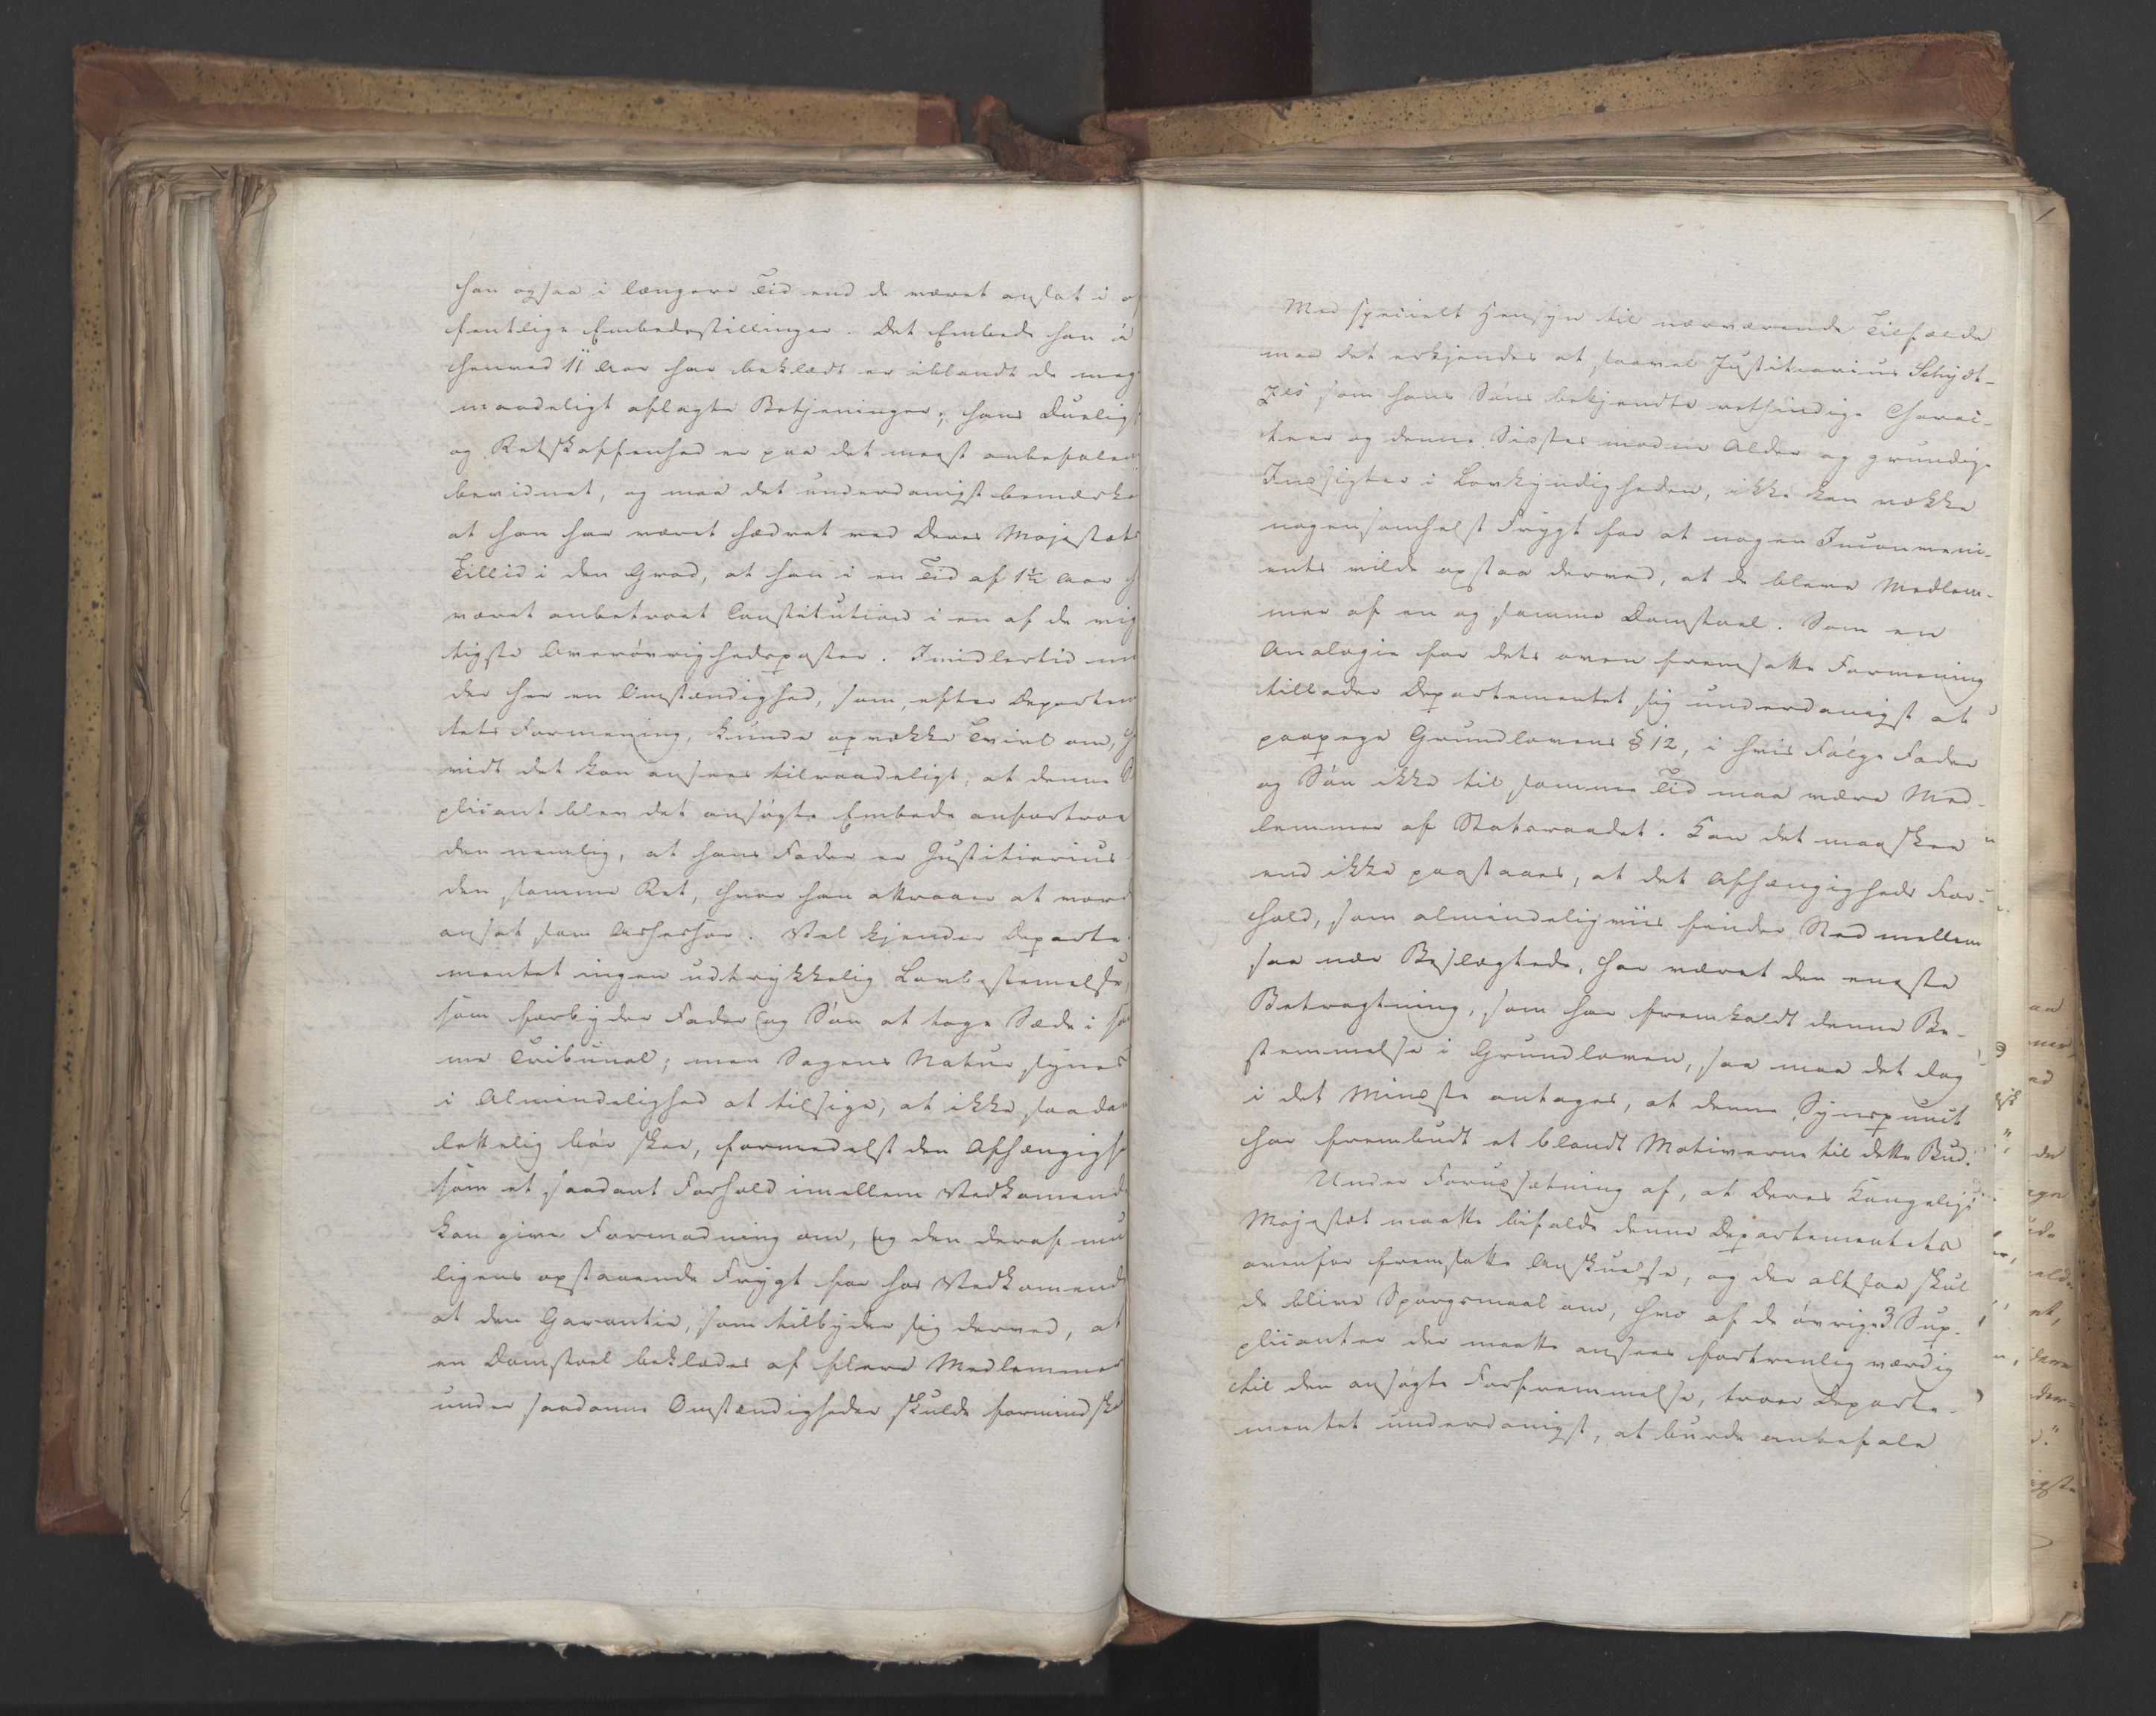 han ogsaa i længere Tid end de været ansat i of
fentlige Embedsstillinger. Det Embede han i
henved 11 Aar har beklædt er iblandt de meg
maadeligt aflagte Betjeninger; hans Duelig
og Retskaffenhed er paa det meest anbefalen
bevidnet, og maa det underdanigst bemærke
at han har været hædret ved Deres Majestæts
Tillid i den Grad, at han i en Tid af 1½ Aar
været anbetroet Constitution i en af de vig
tigste Overøvrighedsposter. Imidlertid
der her en Omstændighed, som, efter Departem
tets Formening, kunde opvække Tvivl om,
vidt det kan ansees tilraadeligt, at denne S
plicant blev det ansøgte Embede anfortroe
den nemlig, at hans Fader er Justitiarius
den samme Ret, hvor han attraaer at vord
ansat som Assessor. Vel kjender Departe
mentet ingen udtrykkelig Lovbestemmelse,
som forbyder Fader og Søn at tage Sæde i sa
me Tribunal; men Sagens Natur synes
i Almindelighed at tilsige, at ikke saadan
lettelig bør skee, formedelst den Afhængigh
som et saadant Forhold imellem Vedkommend
kan give Formodning om, og den deraf mu
ligens opstaaende Frygt for hos Vedkommend
at den Garantie, som tilbyder sig derved, at
en Domstoel beklædes af flere Medlemmer
under saadanne Omstændigheder skulde formindske
Med specielt Hensyn til nærværende Tilfælde
maa det erkjendes at saavel Justitiarius Schydt-
zes som hans Søns bekjendte retsindige Charac-
teer og denne Sidstes modne Alder og grundige
Indsigter i Lovkyndigheden, ikke kan vække
nogensomhelst Frygt for at nogen Inconveni-
ents vilde opstaa derved, at de bleve Medlem-
mer af en og samme Domstoel. Som en
Analogie for dets oven fremsatte Formening
tillader Departementet sig underdanigst at
paapege Grundlovens § 12, i hvis Følge Fader
og Søn ikke til samme Tid maa være Med-
lemmer af Statsraadet. Kan det maaskee
end ikke paastaaes, at det Afhængigheds For-
hold, som almindeligviis finder Sted mellem
saa nær Beslægtede, har været den eneste
Betragtning, som har fremkaldt denne Be-
stemmelse i Grundloven, saa maa det dog
i det Mindste antages, at denne Synspunct
har frembudt et blandt Motiverne til dette Bud.
Under Forudsætning af, at Deres Kongelige
Majestæt maatte bifalde denne Departementets
ovenfor fremsatte Anskuelse, og der altsaa skul
de blive Spørgsmaal om, hvo af de øvrige 3 Sup-
plicanter der maatte ansees fortrinlig værdig
til den ansøgte Forfremmelse, troer Departe-
mentet underdanigst, at burde anbefale